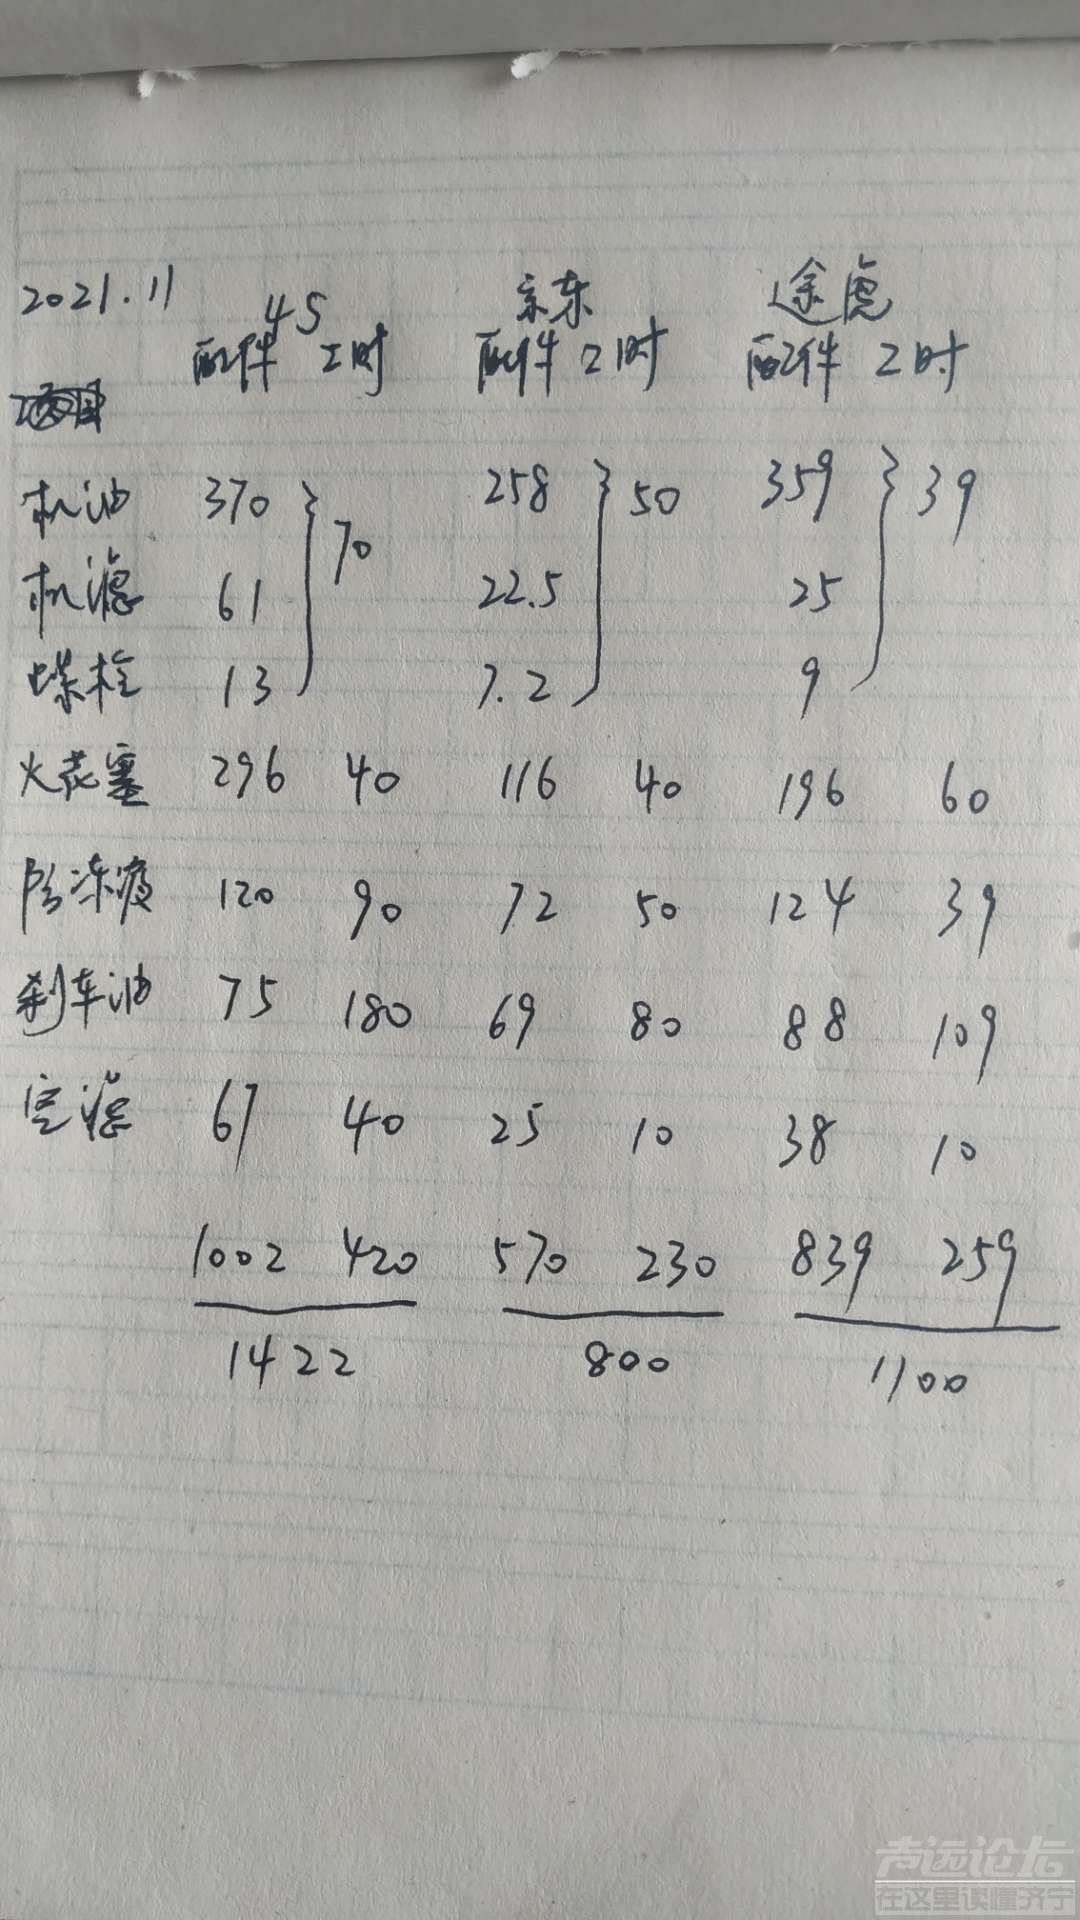 2021.11 4S 京东 途虎
配件 工时 配件 工时 配件 工时
项目
机油 370 } 70 258 } 50 359 } 39
机滤 61 22.5 25
螺栓 13 7.2 9
火花塞 296 40 116 40 196 60
防冻液 120 90 72 50 124 39
刹车油 75 180 69 80 88 109
空滤 67 40 25 10 38 10
1002 420 570 230 839 259
1422 800 1100
声远论坛
在这里读懂济宁